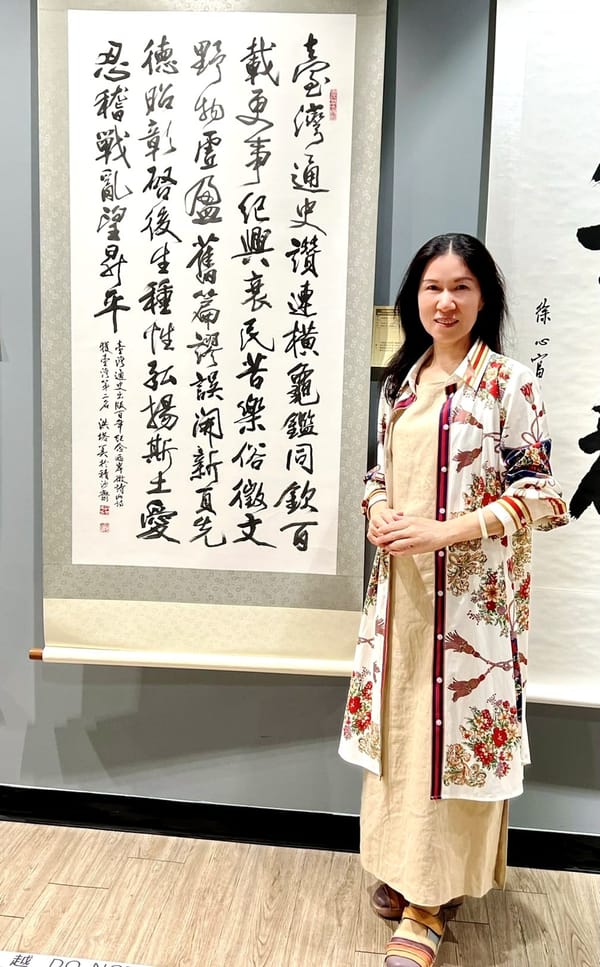 臺灣通史讚連橫龜鑑同欽百
載更事紀興衰民苦樂俗徵文
野物虛盈舊篇謬誤開新頁先
德貽彰啓後生種性弘揚斯土愛
忍稽戰亂望昇平
臺灣通史出版百年紀念兩岸徵詩此詩
獲臺灣第二名 洪
徐心富
越 DO NO